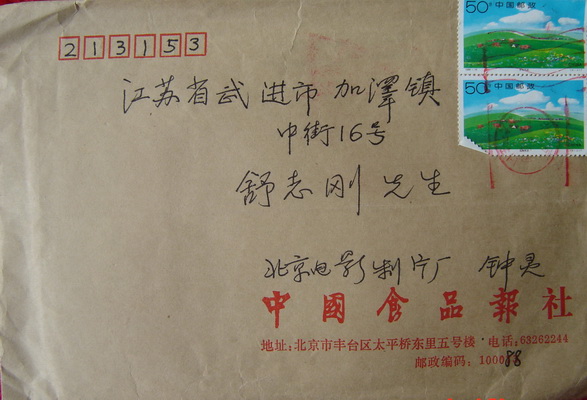 50分 中国邮政
50分 中国邮政
213153
江苏省武进市加泽镇
中街16号
舒志刚 先生
北京电影制片厂 钟灵
中國食品報社
地址:北京市丰台区太平桥东里五号楼·电话:63262244
邮政编码:100088